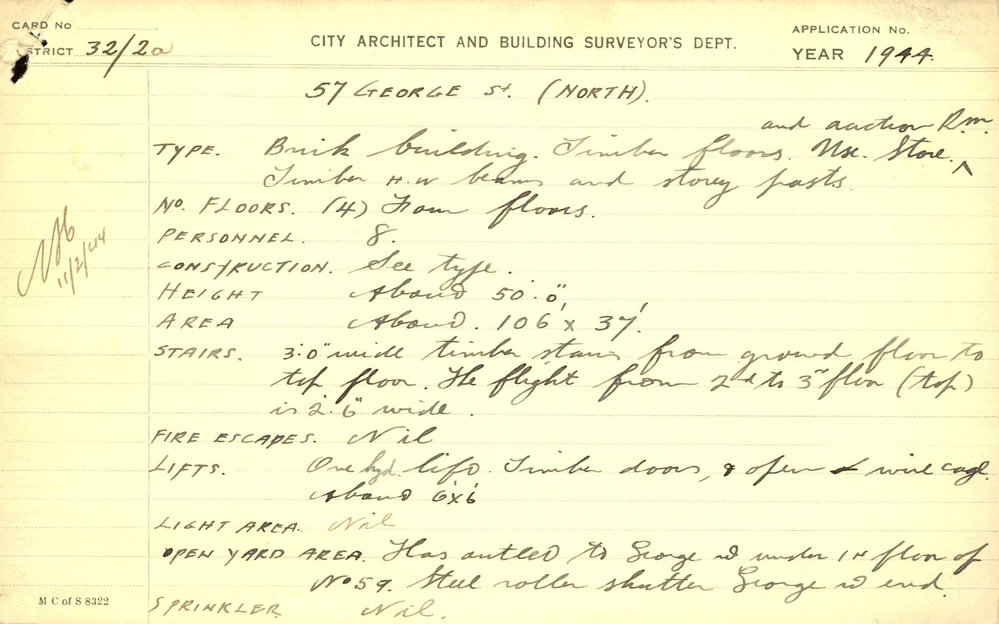 CARD No
DISTRICT 32/2a
CITY ARCHITECT AND BUILDING SURVEYOR'S DEPT.
APPLICATION No.
YEAR 1944.
57 GEORGE St. (NORTH).
TYPE. Brick building. Timber floors. Use. Store. and auction Rm.
Timber H.W beams and storey posts.
No. FLOORS. (4) Four floors.
PERSONNEL. 8.
CONSTRUCTION. See type.
HEIGHT About 50'.0"
AREA About. 106' x 37'.
STAIRS. 3'.0" wide timber stairs from ground floor to
top floor. The flight from 2nd to 3rd floor (top)
is 2'.6" wide.
FIRE ESCAPES. Nil
LIFTS. One hyd. lift. Timber doors, & open wire cage.
About 6'x6'
LIGHT AREA. Nil
OPEN YARD AREA. Has outlet to George St under 1st floor of
No 59. Steel roller shutter George St end.
SPRINKLER. Nil.
11/2/44
M C of S 8322